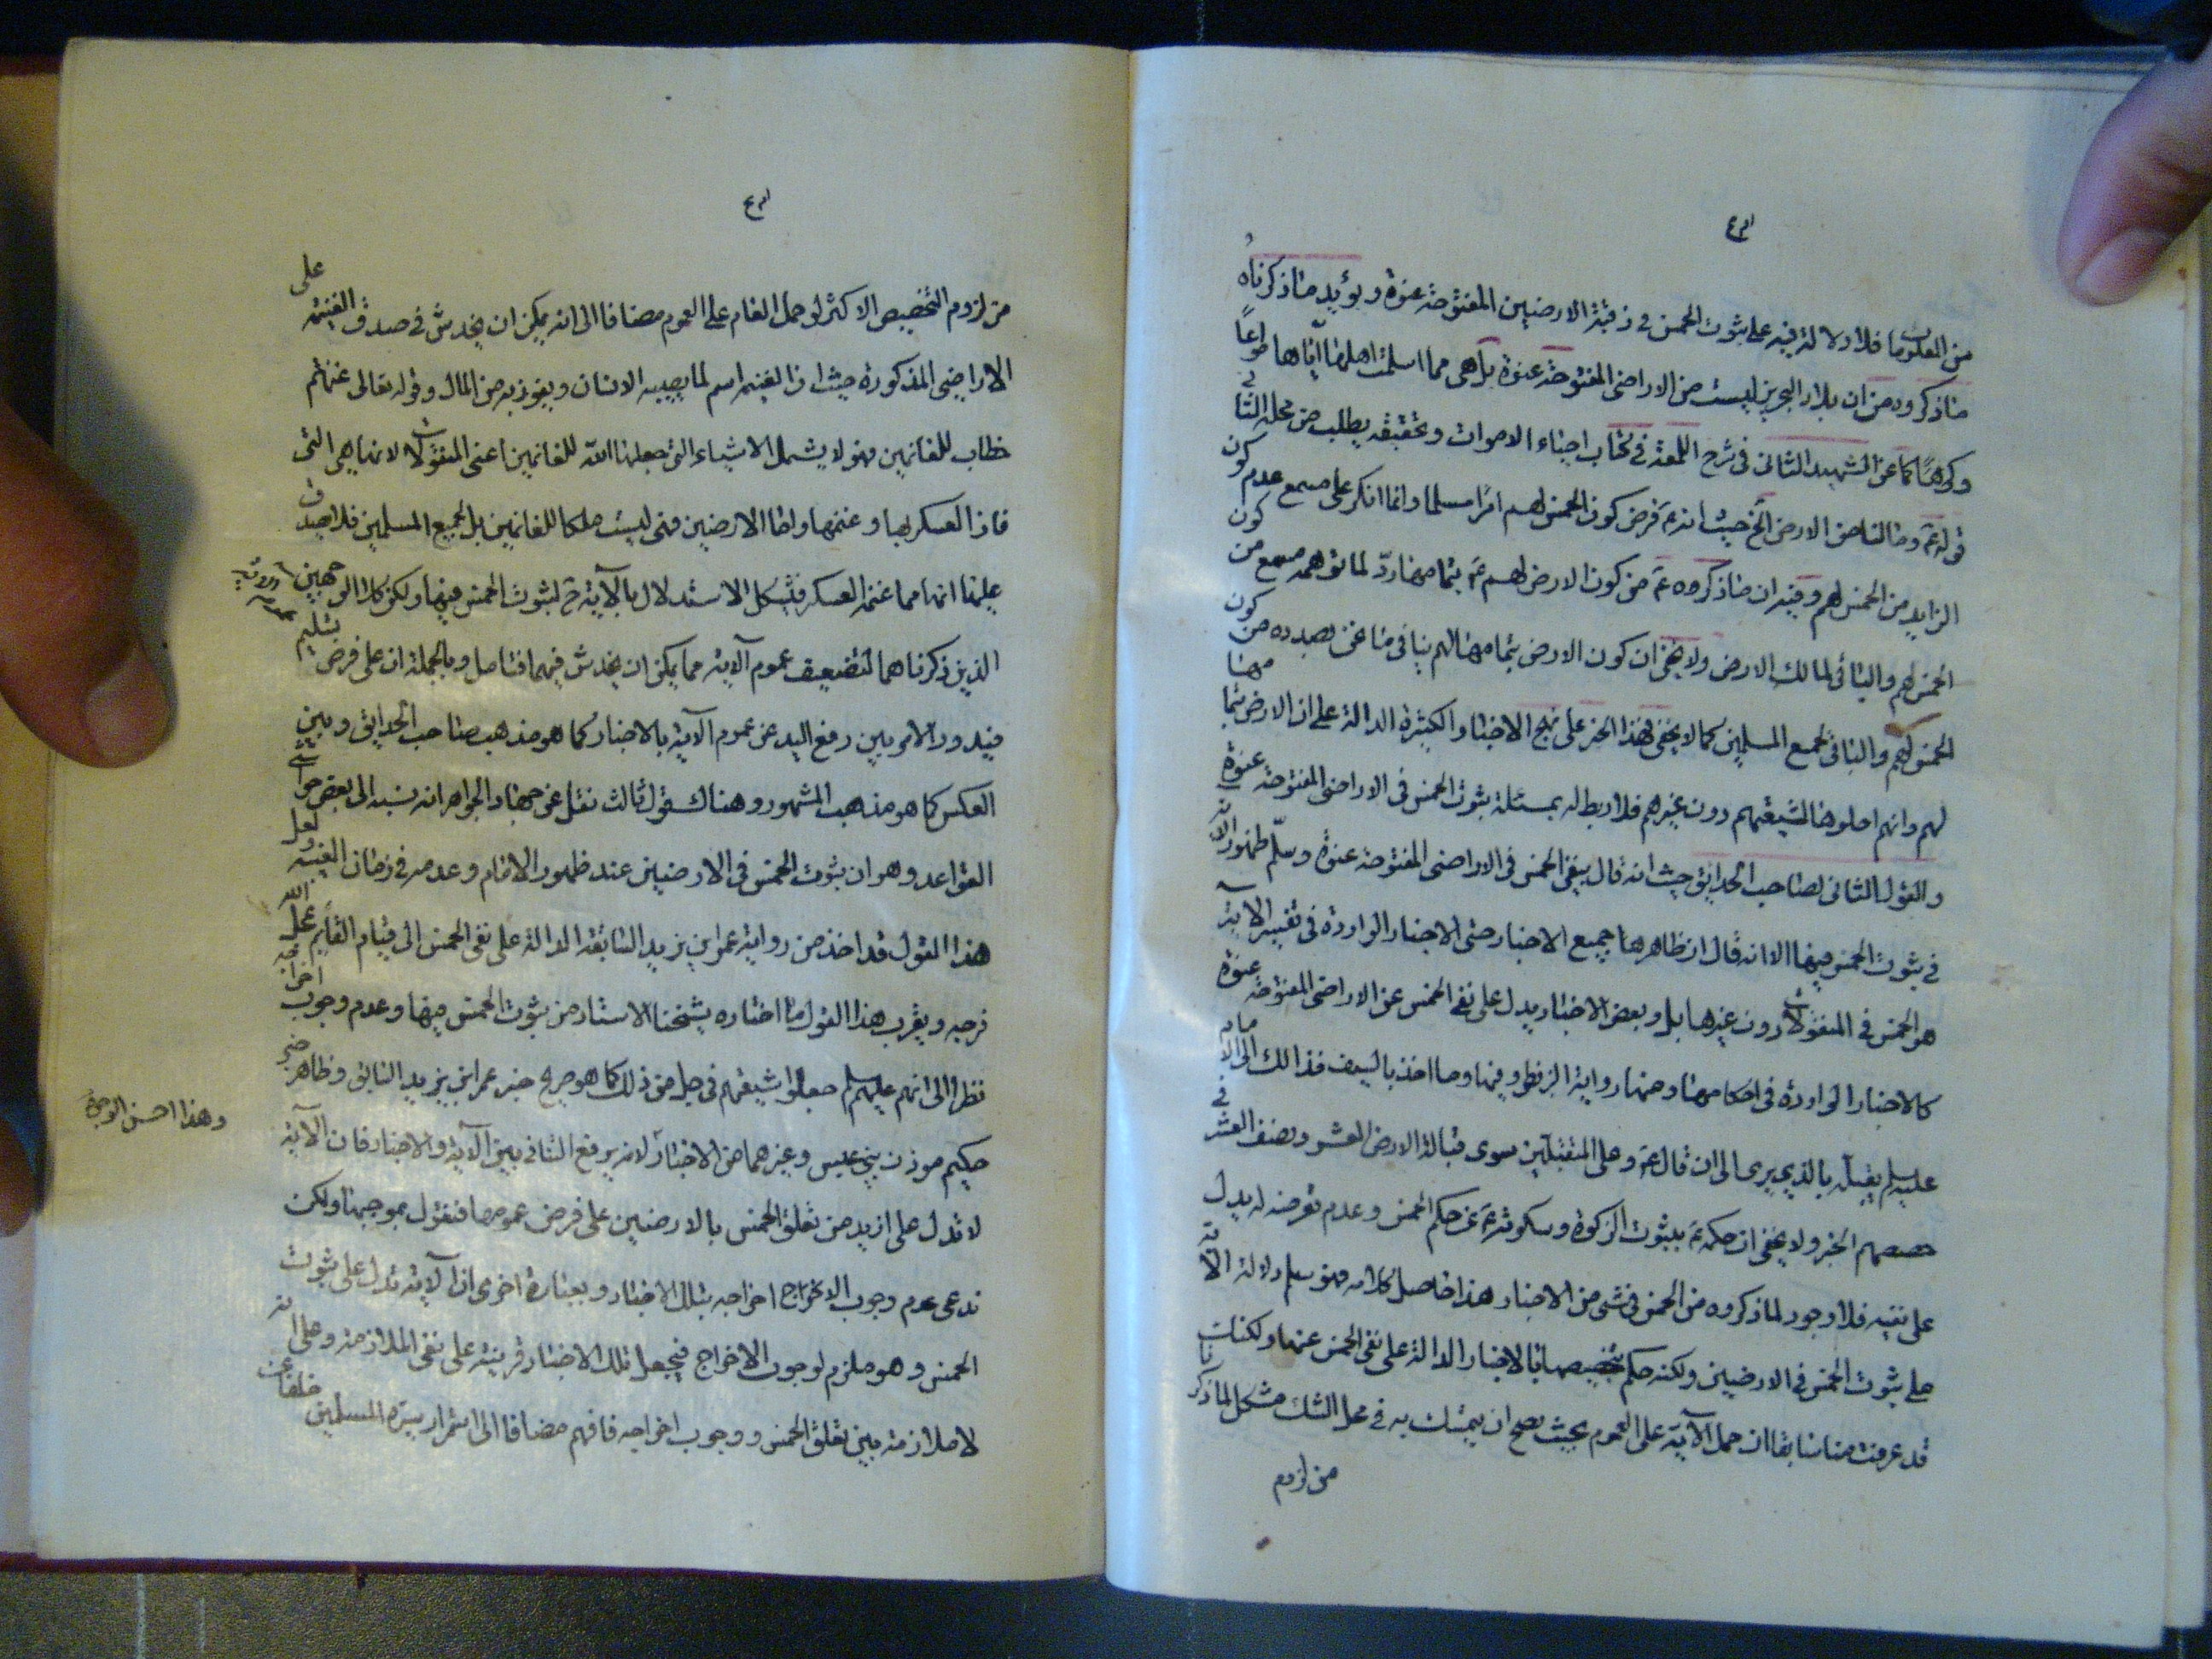 من المعلومات فلا دلالة فيه على ثبوت الخمس فى رقبة الارضيين المفتوحة عنوة و يؤيد ما ذكرناه
ما ذكروه من ان بلاد البحرين ليست من الاراضى المفتوحة عنوة بل هى مما اسلمت اهلها اياها طوعاً
و كرهاً كما عن الشهيد الثانى فى شرح اللمعة فى كتاب احياء الاموات و تحقيقه يطلب من محله الثانى
قوله ع و ما لنا من الارض الخ حيث انه ع فرض كون الخمس لهم امرا مسلما و انما انكر على مسمع عدم كون
الزايد من الخمس لهم و فيه ان ما ذكروه ع من كون الارض لهم ع بتمامها ردّ لما توهمه مسمع من كون
الخمس لهم و الباقى لمالك الارض و لا يخفى ان كون الارض بتمامها لهم ينافى ما نحن بصدده من كون
الخمس لهم و الباقى لجميع المسلمين كما لا يخفى فهذا الخبر على نهج الاخبار الكثيرة الدالة على ان الارض بتمامها
لهم و انهم احلوها لشيعتهم دون غيرهم فلا ربط له بمسئلة ثبوت الخمس فى الاراضى المفتوحة عنوة
و القول الثانى لصاحب الحدايق حيث انه قال بنفى الخمس فى الاراضى المفتوحة عنوة و سلّم ظهور الاية
فى ثبوت الخمس فيها الا انه قال ان ظاهرها جميع الاخبار حتى الاخبار الواردة فى تفسير الآية
هو الخمس فى المنقولات دون غيرها بل و بعض الاخبار يدل على نفى الخمس عن الاراضى المفتوحة عنوة
كالاخبار الواردة فى احكامها و منها رواية البزنطى و فيها و ما اخذ بالسيف فذالك الى الامام
عليه السلم يقبله بالذى يرى الى ان قال ع و على المتقبلين سوى قبالة الارض العشر و نصف العشر فى
حصصهم الخبر و لا يخفى ان حكمه ع بثبوت الزكوة و سكوته ع عن حكم الخمس و عدم تعرضه له يدل
على نفيه فلا وجود لما ذكروه من الخمس فى شى من الاخبار هذا حاصل كلامه فهو سلم دلالة الاية
على ثبوت الخمس فى الارضيين و لكنه حكم بتخصيصها بالاخبار الدالة على نفى الخمس عنها و لكنك
قد عرفت منا سابقا ان حمل الآية على العموم بحيث يصح ان يتمسك به فى محل الشك مشكل لما ذكرنا
من لزوم
من لزوم التخصيص الاكثر لو حمل العام على العموم مضافا الى انه يمكن ان يخدش فى صدق الغنيمة على
الاراضى المذكورة حيث ان الغنيمه اسم لما يصيبه الانسان و يفوز به من المال و قوله تعالى غنمتم
خطاب للغانمين فهو لا يشمل الا شياء التى جعلها الله للغانمين اعنى المنقولات لانها هى التى
فاز العسكر بها و غنمها و اما الارضيين فهى ليست ملكا للغانمين بل لجميع المسلمين فلا يصدق
عليها انها مما غنمه العسكر فيشكل الاستدلال بالآية ح لثبوت الخمس فيها و لكن كلا الوجهين
الذين ذكرناهما لتضعيف عموم الآية مما يمكن ان يخدش فيهما فتامل و بالجملة ان على فرض تسليم
فيدور الامر بين رفع اليد عن عموم الآية بالاخبار كما هو مذهب صاحب الحدايق و بين
العكس كما هو مذهب المشهور و هناك قول ثالث نقل عن جهاد الجواهر انه نسبه الى بعض حواشى
القواعد و هو ان ثبوت الخمس فى الارضيين عند ظهور الامام و عدمه فى زمان الغيبه و لعل
هذا القول قد اخذ من رواية عمر ابن يزيد السابقة الدالة على نفى الخمس الى قيام القايم عجل الله
فرجه و يقرب هذا القول ما اختاره شيخنا الاستاد من ثبوت الخمس فيها و عدم وجوب اخراجه
نظرا الى انهم عليهم السلم جعلوا شيعتهم فى حل من ذلك كما هو صريح خبر عمر ابن يزيد السابق و ظاهر خبر
حكيم موذن بنى عبس و غيرهما من الاخبار لانه يرفع التنافى بين الآية و الاخبار فان الآية
و هذا احسن الوجوه
لا تدل على ازيد من تعلق الخمس بالارضيين على فرض عمومها فنقول بموجبها و لكن
ندعى عدم وجوب الاخراج اخراجه بتلك الاخبار و بعبارة اخرى ان الآية تدل على ثبوت
الخمس و هو ملزم لوجوب الاخراج فيجعل تلك الاخبار قرينة على نفى الملازمة و على انه
لا ملازمة بين تعلق الخمس و وجوب اخراجه فافهم مضافا الى استمرار سيرة المسلمين